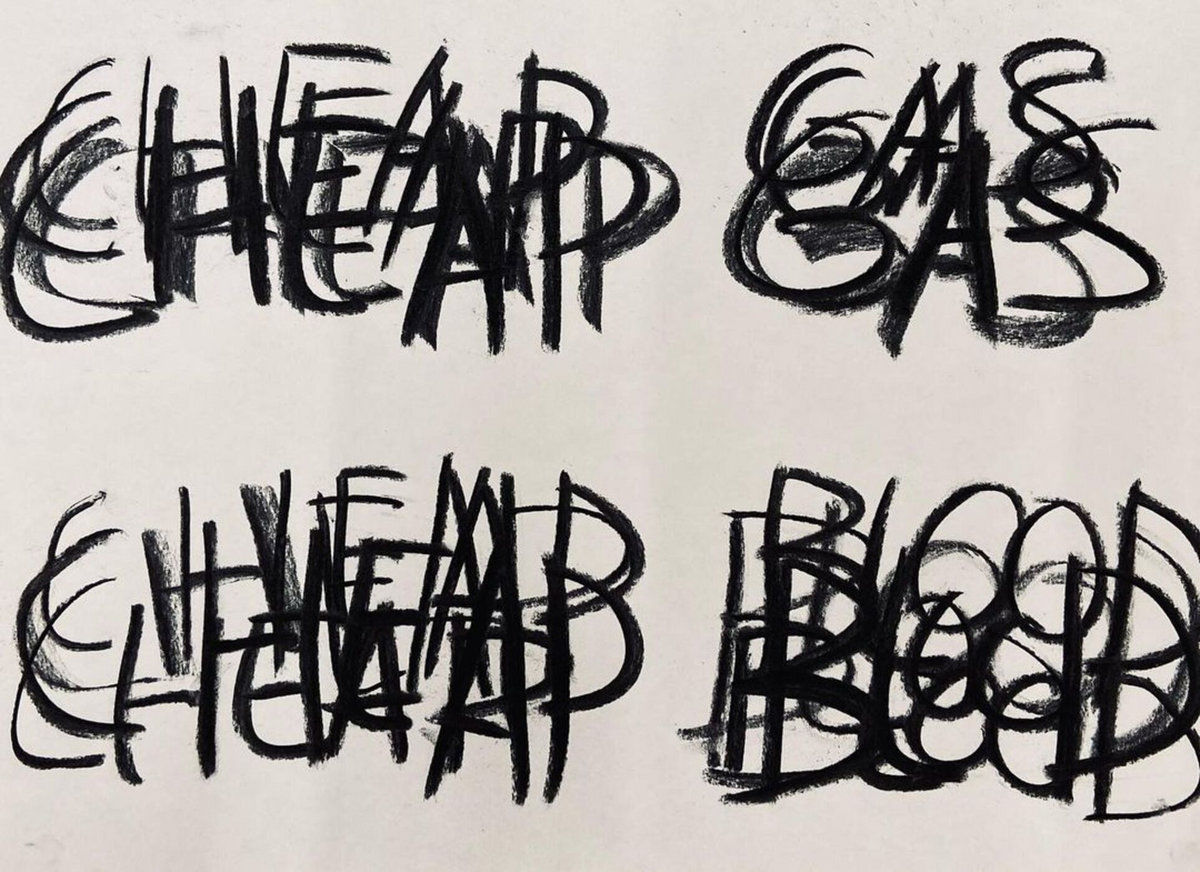 CHEAP GAS
CHEAP BLOOD